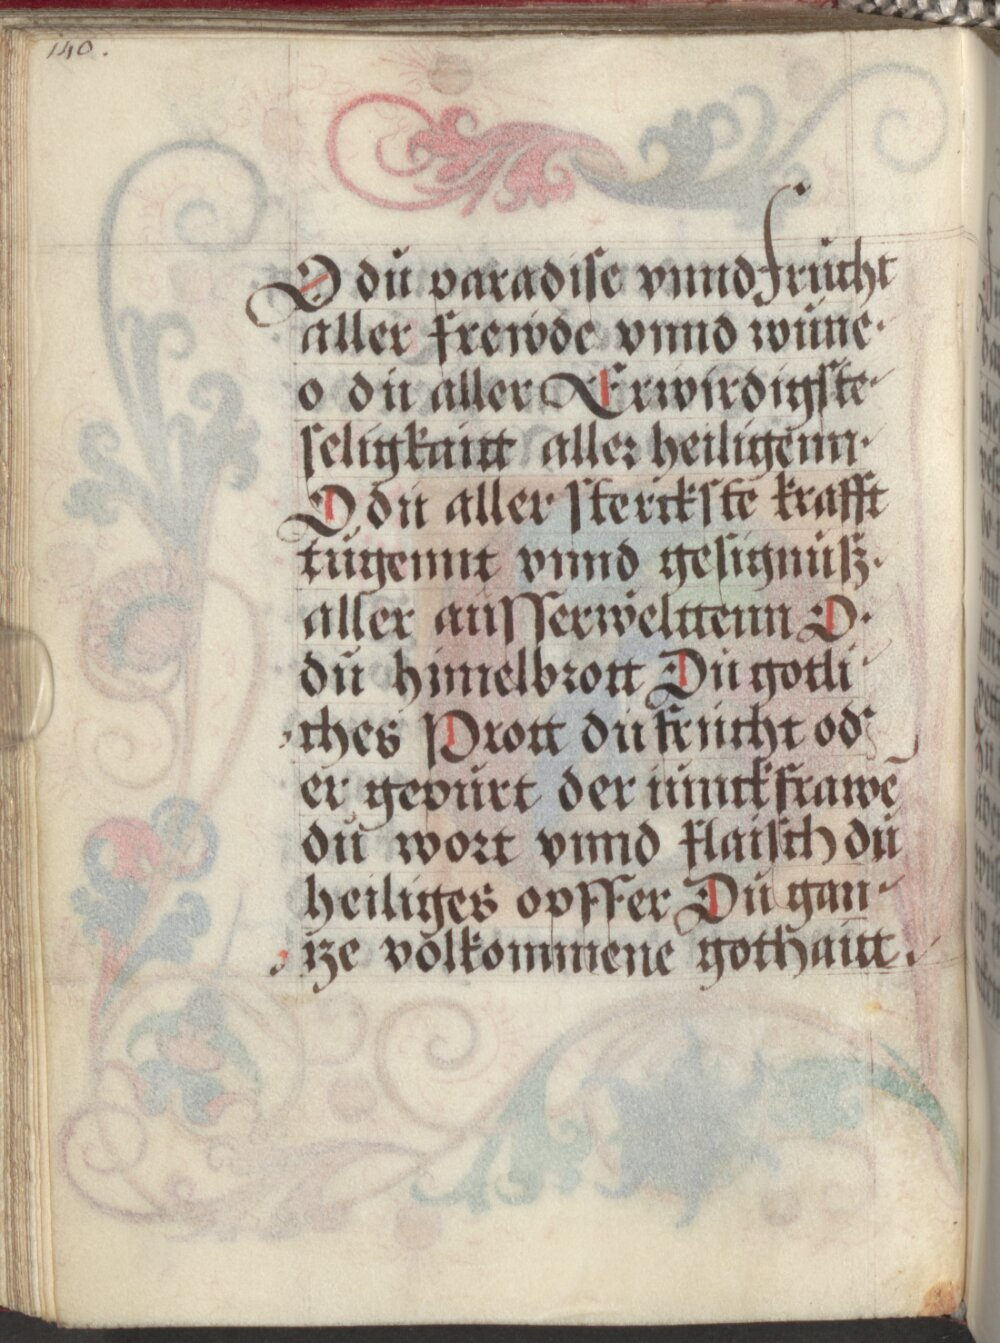 140.
O dü paradise vnnd frücht
aller frewde vnnd wüne·
o dü aller Erwirdigste·
seligkaitt aller heiligenn·
O dü aller sterckste krafft
tügennt vnnd gesignüsz·
aller aüsserwelttenn O·
dü himelbrott Dü gotli
ches Prott dü frücht od
er gepürt der iünckfrawē
dü wort vnnd flaisch dü
heiliges opffer Dü gan
tze volkommene gothaitt·